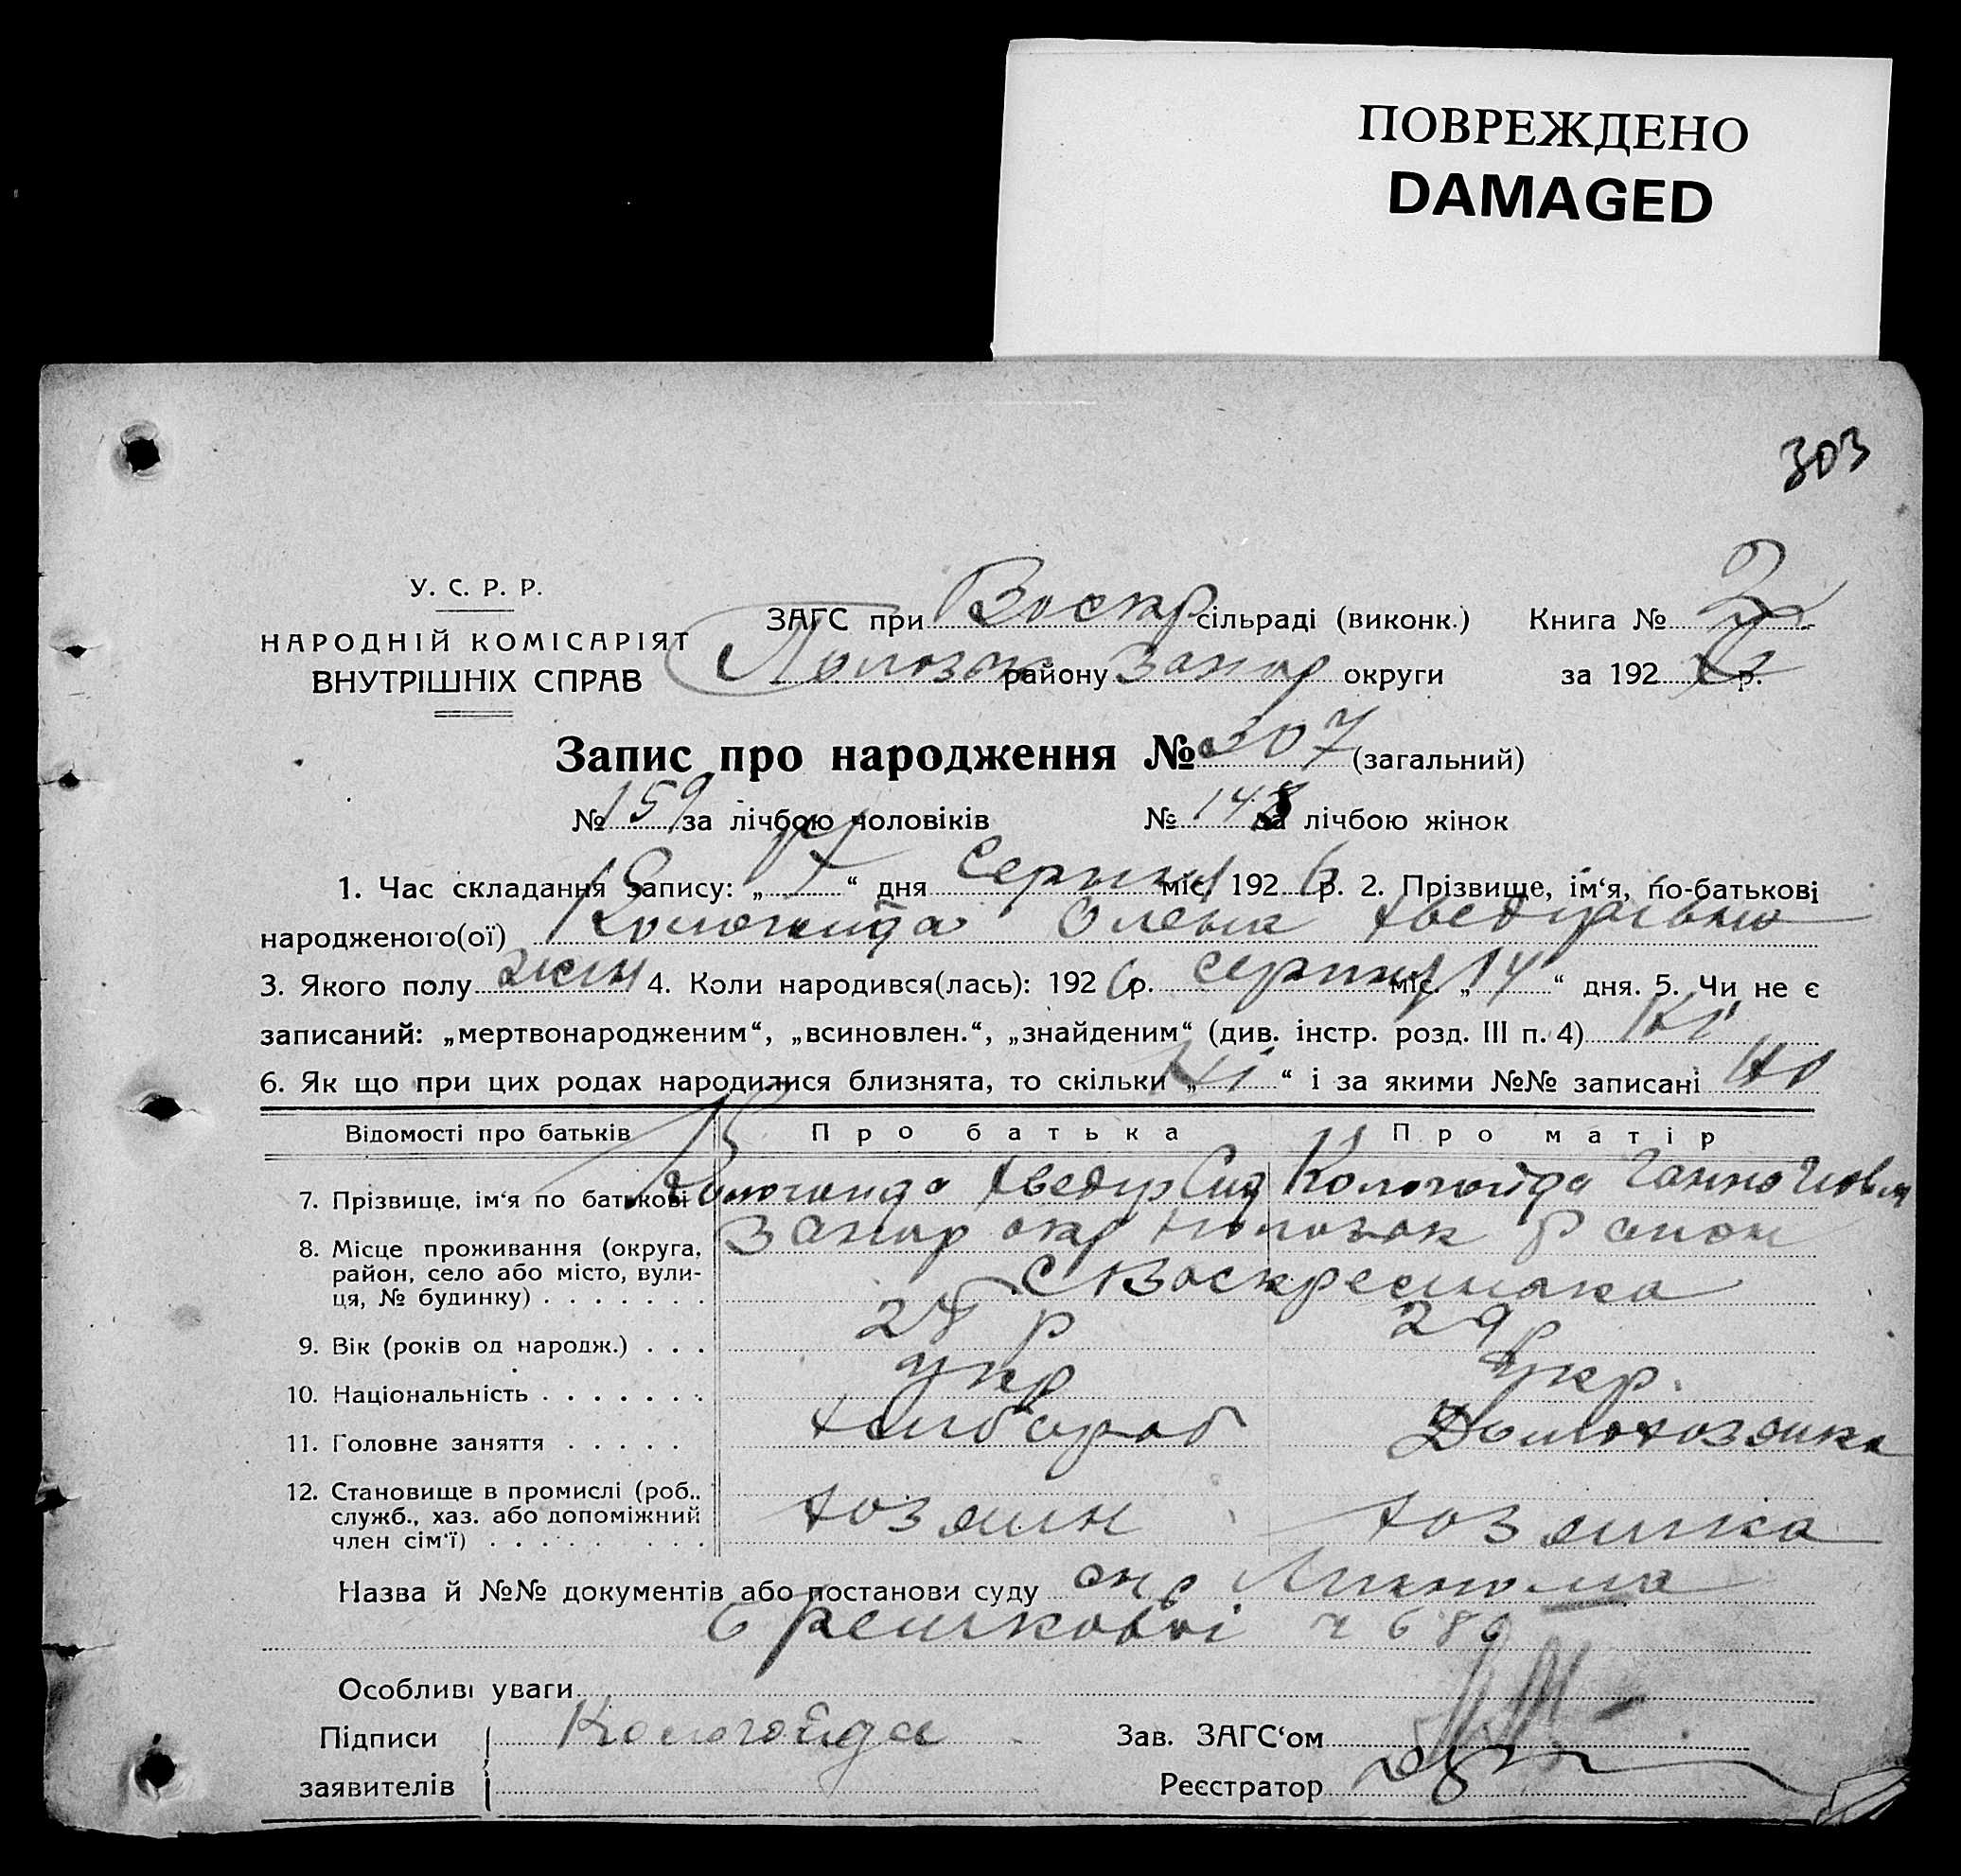 ПОВРЕЖДЕНО
DAMAGED
303
У. С. Р. Р.
НАРОДНІЙ КОМІСАРІЯТ
ВНУТРІШНІХ СПРАВ
ЗАГС при Воскр сільраді (виконк.) Книга № 2
Полозк району Запор округи за 192 р.
Запис про народження № 307 (загальний)
№ 159 за лічбою чоловіків № 148 за лічбою жінок
1. Час складання запису: „ 17 “ дня Серпня міс. 192 6 р. 2. Прізвище, ім‘я, по-батькові
народженого(ої) Кологойда Олена Хведирівна
3. Якого полу жін 4. Коли народився(лась): 192 6 р. серпня міс. „ 14 “ дня. 5. Чи не є
записаний: „мертвонародженим“, „всиновлен.“, „знайденим“ (див. інстр. розд. III п. 4) Ні
6. Як що при цих родах народилися близнята, то скільки „ Ні “ і за якими №№ записані
Відомості про батьків Про батька Про матір
7. Прізвище, ім‘я по батькові Кологойда Хведир Сид Кологойда Ганна
8. Місце проживання (округа, район, село або місто, вули-ця, № будинку) . . . . . . . Запор окр Полозск Район
С Воскресенка
9. Вік (років од народж.) . . . р 29 р
10. Національність . . . . . . . укр укр.
11. Головне заняття . . . . . Хлібороб Домохозяика
12. Становище в промислі (роб., служб., хаз. або допоміжний член сім‘ї) . . . . . . . . . хозяин хозяика
Назва й №№ документів або постанови суду
686
Особливі уваги
Підписи Кологойда Зав. ЗАГС‘ом
заявителів Реєстратор